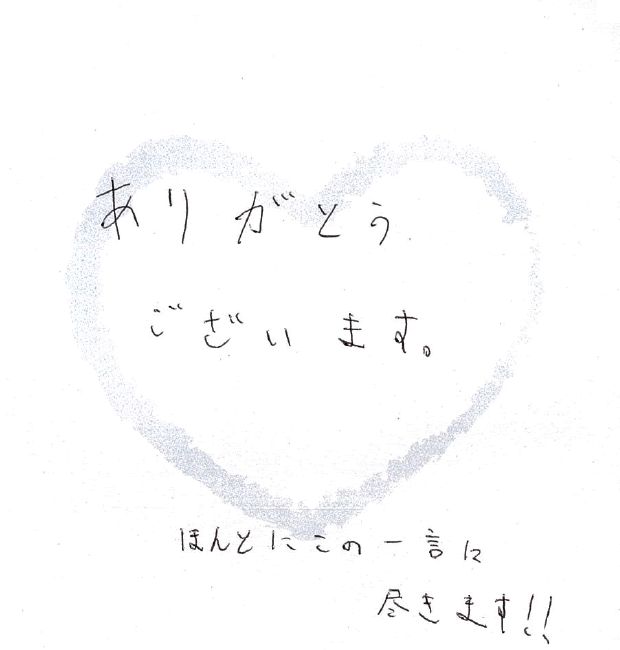 ありがとう
ございます。
ほんとにこの一言に
尽きます!!